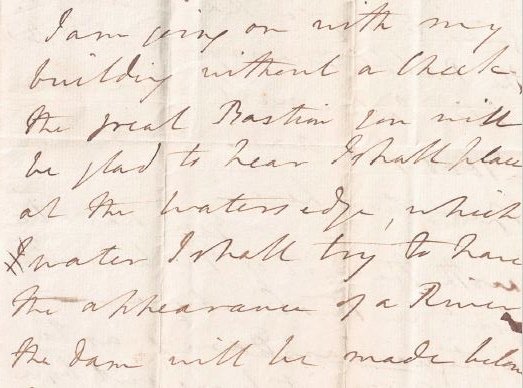 I am going on with my
building without a Check,
the great Bastion you will
be glad to hear I shall place
at the waters edge, which
water I shall try to have
the appearance of a River
the dam will be made below